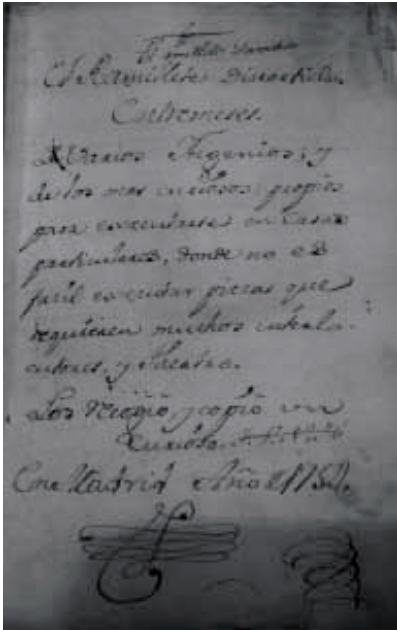 El Ramillete Discreto de
Entremeses.
De Varios Ingenios, y
de los mas curiosos, propios
para executarse en Casas
particulares, donde no es
facil executar piezas que
requieren muchos interlo-
cutores, y Theatro.
Los recogio, y copio un
Curioso
En Madrid Año